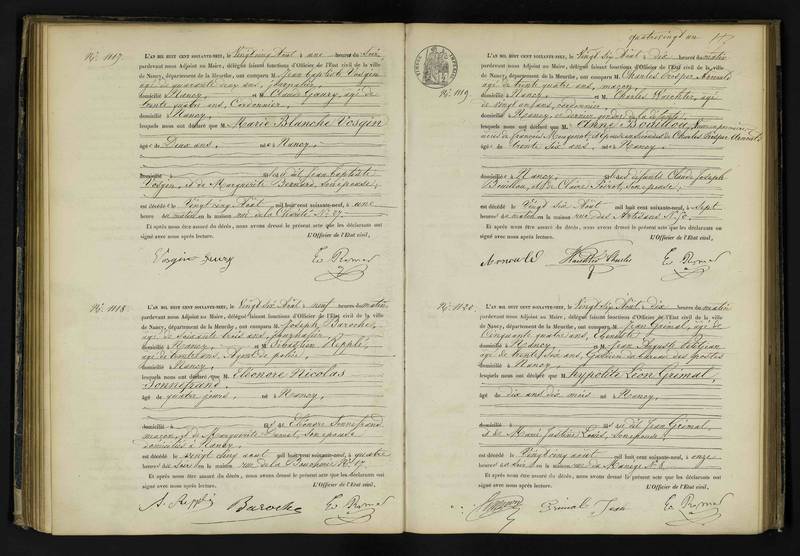 No. 1117.
L'AN MIL HUIT CENT SOIXANTE-NEUF, le Vingt cinq Août à une heure du Soir
pardevant nous Adjoint au Maire, délégué faisant fonctions d'Officier de l'Etat civil de la ville
de Nancy, département de la Meurthe, ont comparu M. Jean Baptiste Vosgin
âgé de quarante deux ans, journalier
domicilié à Nancy et M. Claude Gaury, âgé de
trente quatre ans, Cordonnier,
domicilié à Nancy,
lesquels nous ont déclaré que M. Marie Blanche Vosgin
âgé e de Deux ans, né e à Nancy,
domicilié à fils dit Jean Baptiste
Vosgin, et de Marguerite Bernard, son épouse,
est décédé e le Vingt cinq Août mil huit cent soixante-neuf, à une
heure du matin en la maison rue de la Charité No. 27.
Et après nous être assuré du décès, nous avons dressé le présent acte que les déclarants ont
signé avec nous après lecture. L'Officier de l'Etat civil,
Vosgin Gaury
No. 1118.
L'AN MIL HUIT CENT SOIXANTE-NEUF, le Vingt six Août à neuf heures du matin
pardevant nous Adjoint au Maire, délégué faisant fonctions d'Officier de l'Etat civil de la ville
de Nancy, département de la Meurthe, ont comparu M. Joseph Baroche,
âgé de soixante trois ans, journalier
domicilié à Nancy, et M. Sébastien Kepplé,
âgé de trente ans, Agent de police,
domicilié à Nancy,
lesquels nous ont déclaré que M. Eléonore Nicolas
Tonnefrand,
âgé de quatre jours, né à Nancy,
domicilié à fils de Eléonore Tonnefrand
maçon, et de Marguerite son épouse
domiciliés à Nancy
est décédé le vingt cinq août mil huit cent soixante-neuf, à quatre
heures du soir en la maison rue de la No. 17
Et après nous être assuré du décès, nous avons dressé le présent acte que les déclarants ont
signé avec nous après lecture. L'Officier de l'Etat civil,
Baroche
quatrevingt un
No. 1119.
L'AN MIL HUIT CENT SOIXANTE-NEUF, le Vingt six Août à dix heures du matin
pardevant nous Adjoint au Maire, délégué faisant fonctions d'Officier de l'Etat civil de la ville
de Nancy, département de la Meurthe, ont comparu M. Charles Prosper Arnould
âgé de trente quatre ans, maçon,
domicilié à Nancy, et M. Charles Waechter, âgé
de vingt un ans, cordonnier
domicilié à Nancy,
lesquels nous ont déclaré que M. Anne Bouillon,
âgé e de trente six ans, né e à Nancy,
domicilié e à Nancy, fille de défunts Claude Joseph
Bouillon, et de Claire Poirot, son épouse,
est décédé e le Vingt six Août mil huit cent soixante-neuf, à Sept
heures du matin en la maison rue des Artisans No. 70.
Et après nous être assuré du décès, nous avons dressé le présent acte que les déclarants ont
signé avec nous après lecture. L'Officier de l'Etat civil,
Arnould Waechter Charles
No. 1120.
L'AN MIL HUIT CENT SOIXANTE-NEUF, le Vingt six Août à dix heures du matin
pardevant nous Adjoint au Maire, délégué faisant fonctions d'Officier de l'Etat civil de la ville
de Nancy, département de la Meurthe, ont comparu M. Jean Grimal, âgé de
cinquante quatre ans,
domicilié à Nancy et M. Jean Auguste
âgé de trente six ans, Gardien de bureau des postes
domicilié à Nancy,
lesquels nous ont déclaré que M. Hyppolite Léon Grimal,
âgé de dix ans dix mois né à Nancy,
domicilié à fils dit Jean Grimal,
et de Marie Justine Louis, son épouse,
est décédé le Vingt cinq août mil huit cent soixante-neuf, à onze
heures du soir en la maison rue du Manège No. 8
Et après nous être assuré du décès, nous avons dressé le présent acte que les déclarants ont
signé avec nous après lecture. L'Officier de l'Etat civil,
Grimal Jean